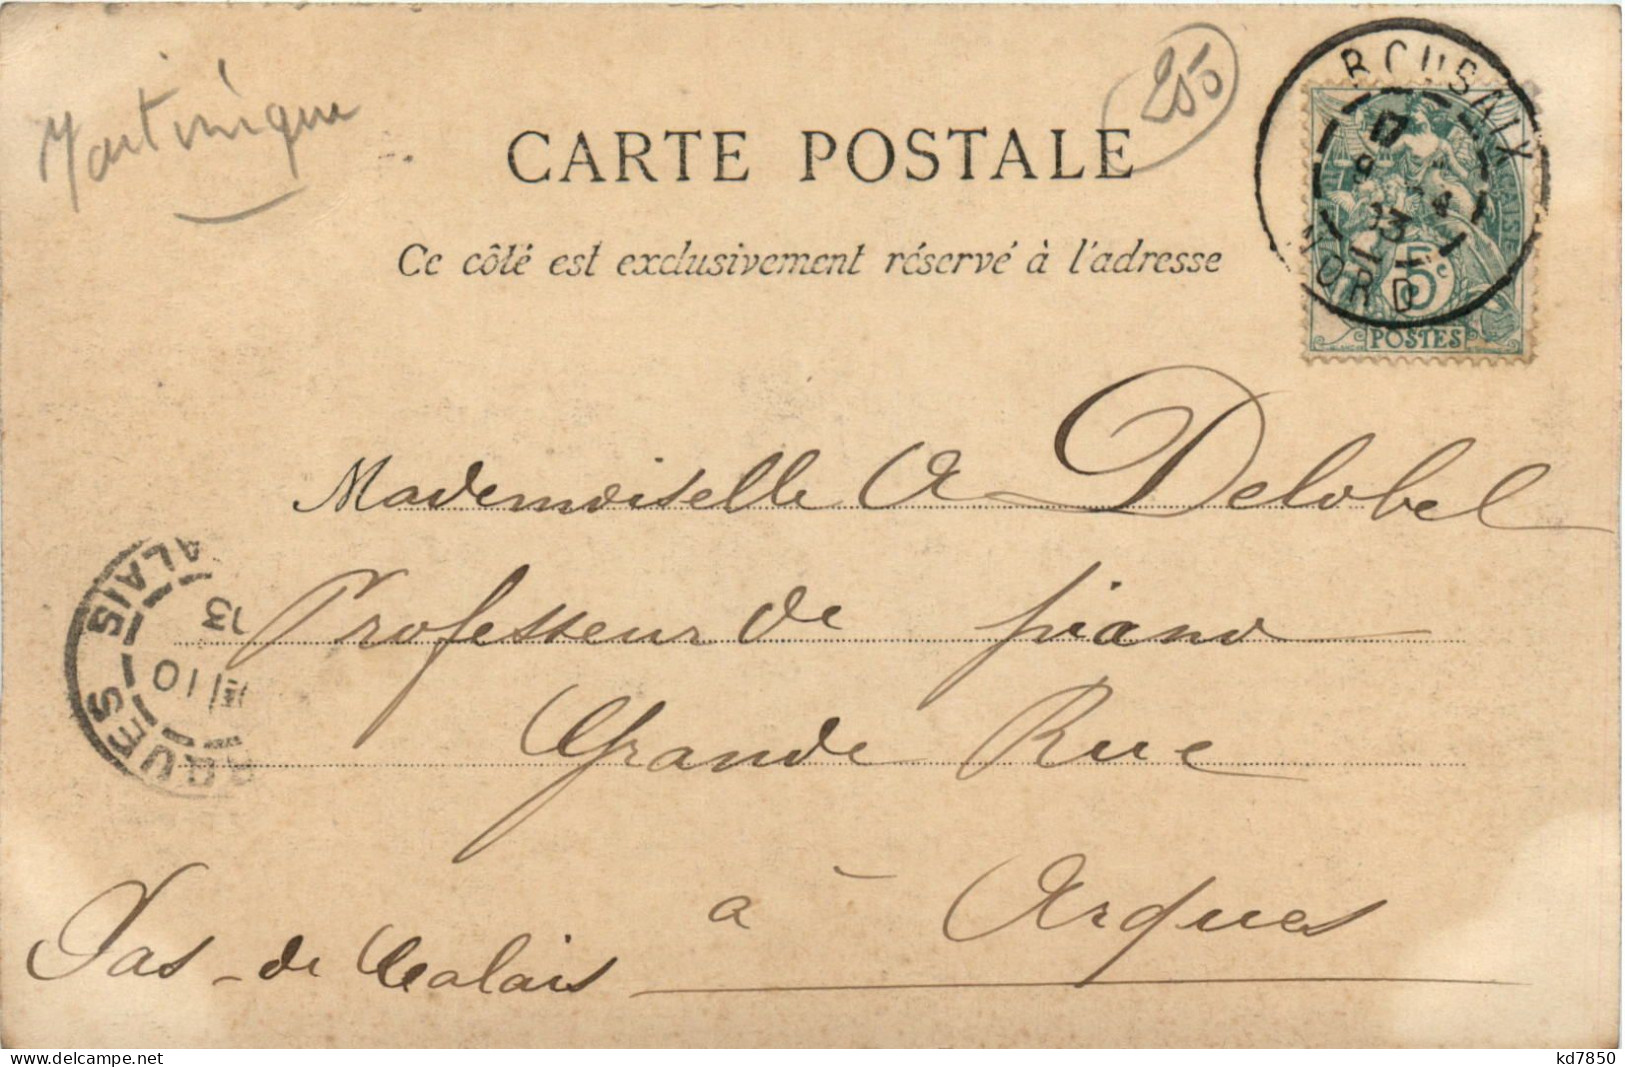 Martinique
250
CARTE POSTALE
Ce côté est exclusivement réservé à l'adresse
ROUBAIX
17
03
NORD
5c
POSTES
Mademoiselle A Delobel
Professeur de piano
Grande Rue
à Arques
Pas-de Calais
ALAIS
13
10
kd7850
delcampe.net